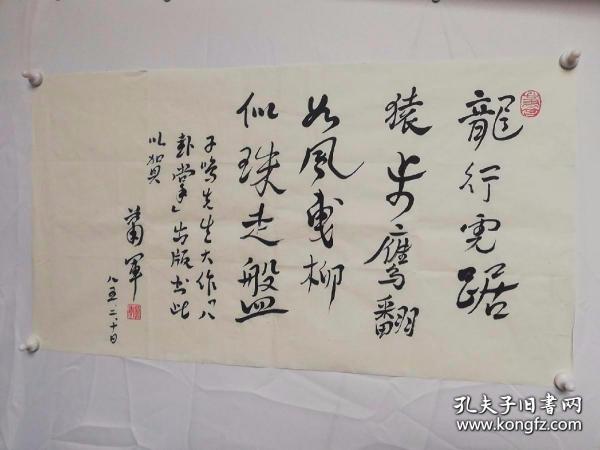 龍行虎踞
猿步鷹翻
如風曳柳
似珠走盤
子鸣先生大作“八
卦掌”出版书此
以贺
蕭軍
八五、二、十日
孔夫子旧书网
www.kongfz.com